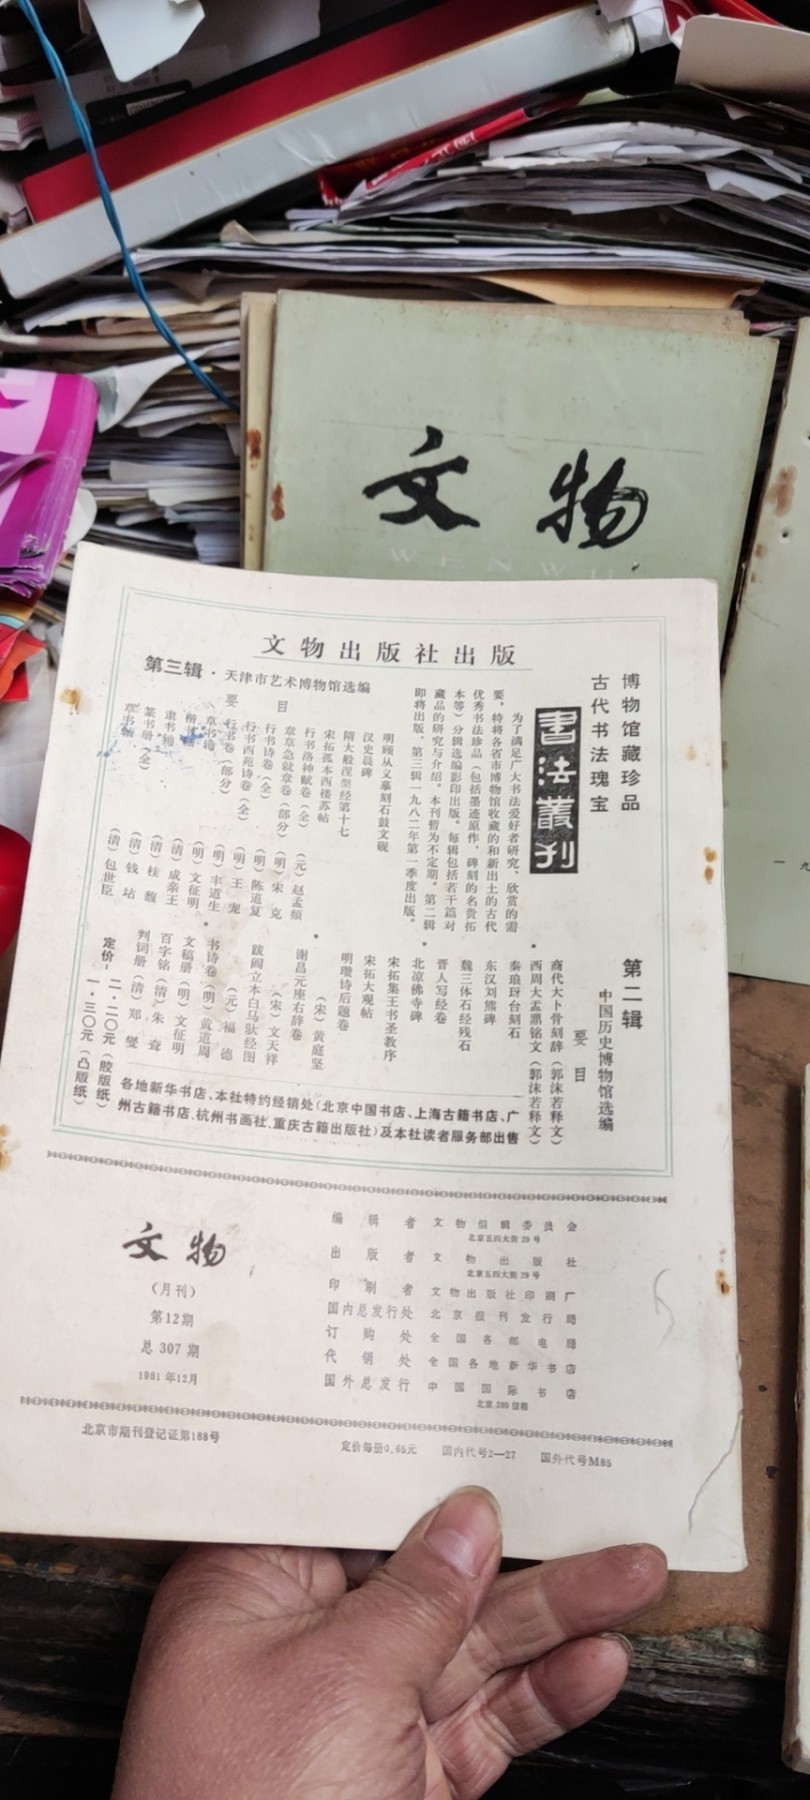 文物
WENWU
文物出版社出版
博物馆藏珍品
古代书法瑰宝
書法叢刊
为了满足广大书法爱好者研究、欣赏的需
要，特将各省市博物馆收藏的和新出土的古代
优秀书法珍品（包括墨迹原作、碑刻的名贵拓
本等）分辑选编影印出版。每辑包括若干篇对
藏品的研究与介绍。本刊暂为不定期。第二辑
即将出版，第三辑一九八二年第一季度出版。
第二辑
中国历史博物馆选编
要目
商代大卜骨刻辞（郭沫若释文）
西周大盂鼎铭文（郭沫若释文）
秦琅玡台刻石
东汉刘熊碑
魏三体石经残石
晋人写经卷
北凉佛寺碑
宋拓集王书圣教序
宋拓大观帖
明瓒诗后题卷
（宋）黄庭坚
谢昌元座右辞卷
（宋）文天祥
跋阎立本白马驮经图
（元）福德
书诗卷（明）黄道周
文稿册（明）文征明
百字铭（清）朱耷
判词册（清）郑燮
第三辑·天津市艺术博物馆选编
要目
明顾从义摹刻石鼓文砚
汉史晨碑
隋大般涅槃经第十七
宋拓孤本西楼苏帖
行书洛神赋卷（全）（元）赵孟頫
章草急就章卷（部分）（明）宋克
行书诗卷（全）（明）陈道复
行书西苑诗卷（全）（明）王宠
行书卷（部分）（明）丰道生
草书轴（明）文征明
楷（清）成亲王
隶书轴（清）桂馥
篆书册（全）（清）钱坫
草书轴（清）包世臣
定价：二·二〇元（胶版纸）
一·三〇元（凸版纸）
各地新华书店、本社特约经销处（北京中国书店、上海古籍书店、广
州古籍书店、杭州书画社、重庆古籍出版社）及本社读者服务部出售
文物
（月刊）
第12期
总307期
1981年12月
编辑者 文物编辑委员会
北京五四大街29号
出版者 文物出版社
北京五四大街29号
印刷者 文物出版社印刷厂
国内总发行处 北京报刊发行局
订购处 全国各邮电局
代销处 全国各地新华书店
国外总发行 中国国际书店
北京399信箱
北京市期刊登记证第188号
定价每册0.65元 国内代号2—27 国外代号M85
一九